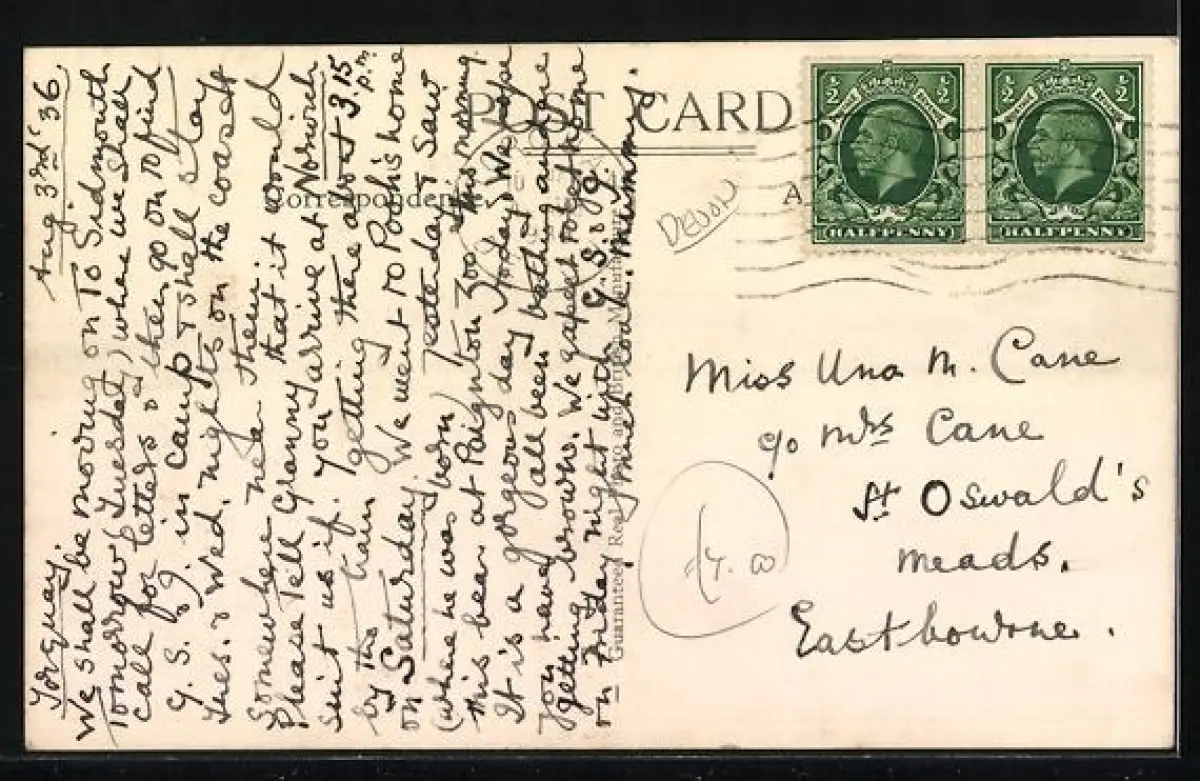 Torquay. Aug 3rd '36.
We shall be moving on to Sidmouth
tomorrow (Tuesday) where we shall
call for letters & then go on to find
G. S. & J. in camp & shall stay
Tues. & Wed. nights on the coast
somewhere near them
Please tell Granny that it would
suit us if you arrive at Norwich
by the train getting there about 3.15 p.m.
on Saturday. We went to Pooh's home
(where he was born) yesterday & saw
this bear at Paignton Zoo this morning.
It is a gorgeous day today. We hope
you have all been bathing and are
getting brown. We expect to get home
on Friday night with G. S. & J.
Much love. Mummy.
POST CARD
Correspondence.
A
Guaranteed Real Photo and British Manufacture
½ ½
HALFPENNY
½ ½
HALFPENNY
DEVON
Miss Una M. Cane
c/o Mrs Cane
St Oswald's
Meads.
Eastbourne.